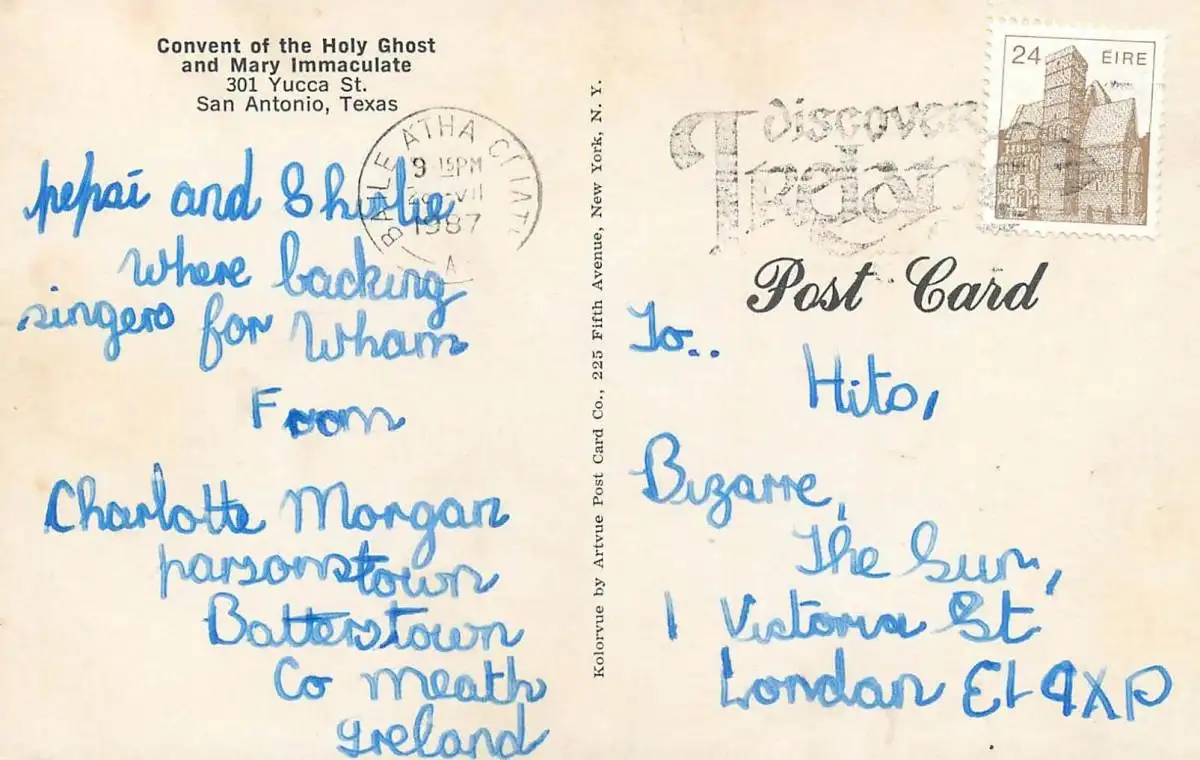 Convent of the Holy Ghost
and Mary Immaculate
301 Yucca St.
San Antonio, Texas
BAILE ATHA CLIATH
9 15PM
VII
1987
A
discover
Ireland
24 ÉIRE
Post Card
Kolorvue by Artvue Post Card Co., 225 Fifth Avenue, New York, N. Y.
pepsi and Shirlie
Where backing
singers for Wham
From
Charlotte Morgan
parsonstown
Batterstown
Co meath
Ireland
To..
Hits,
Bizarre,
The Sun,
1 Victoria St
London E1 9XP